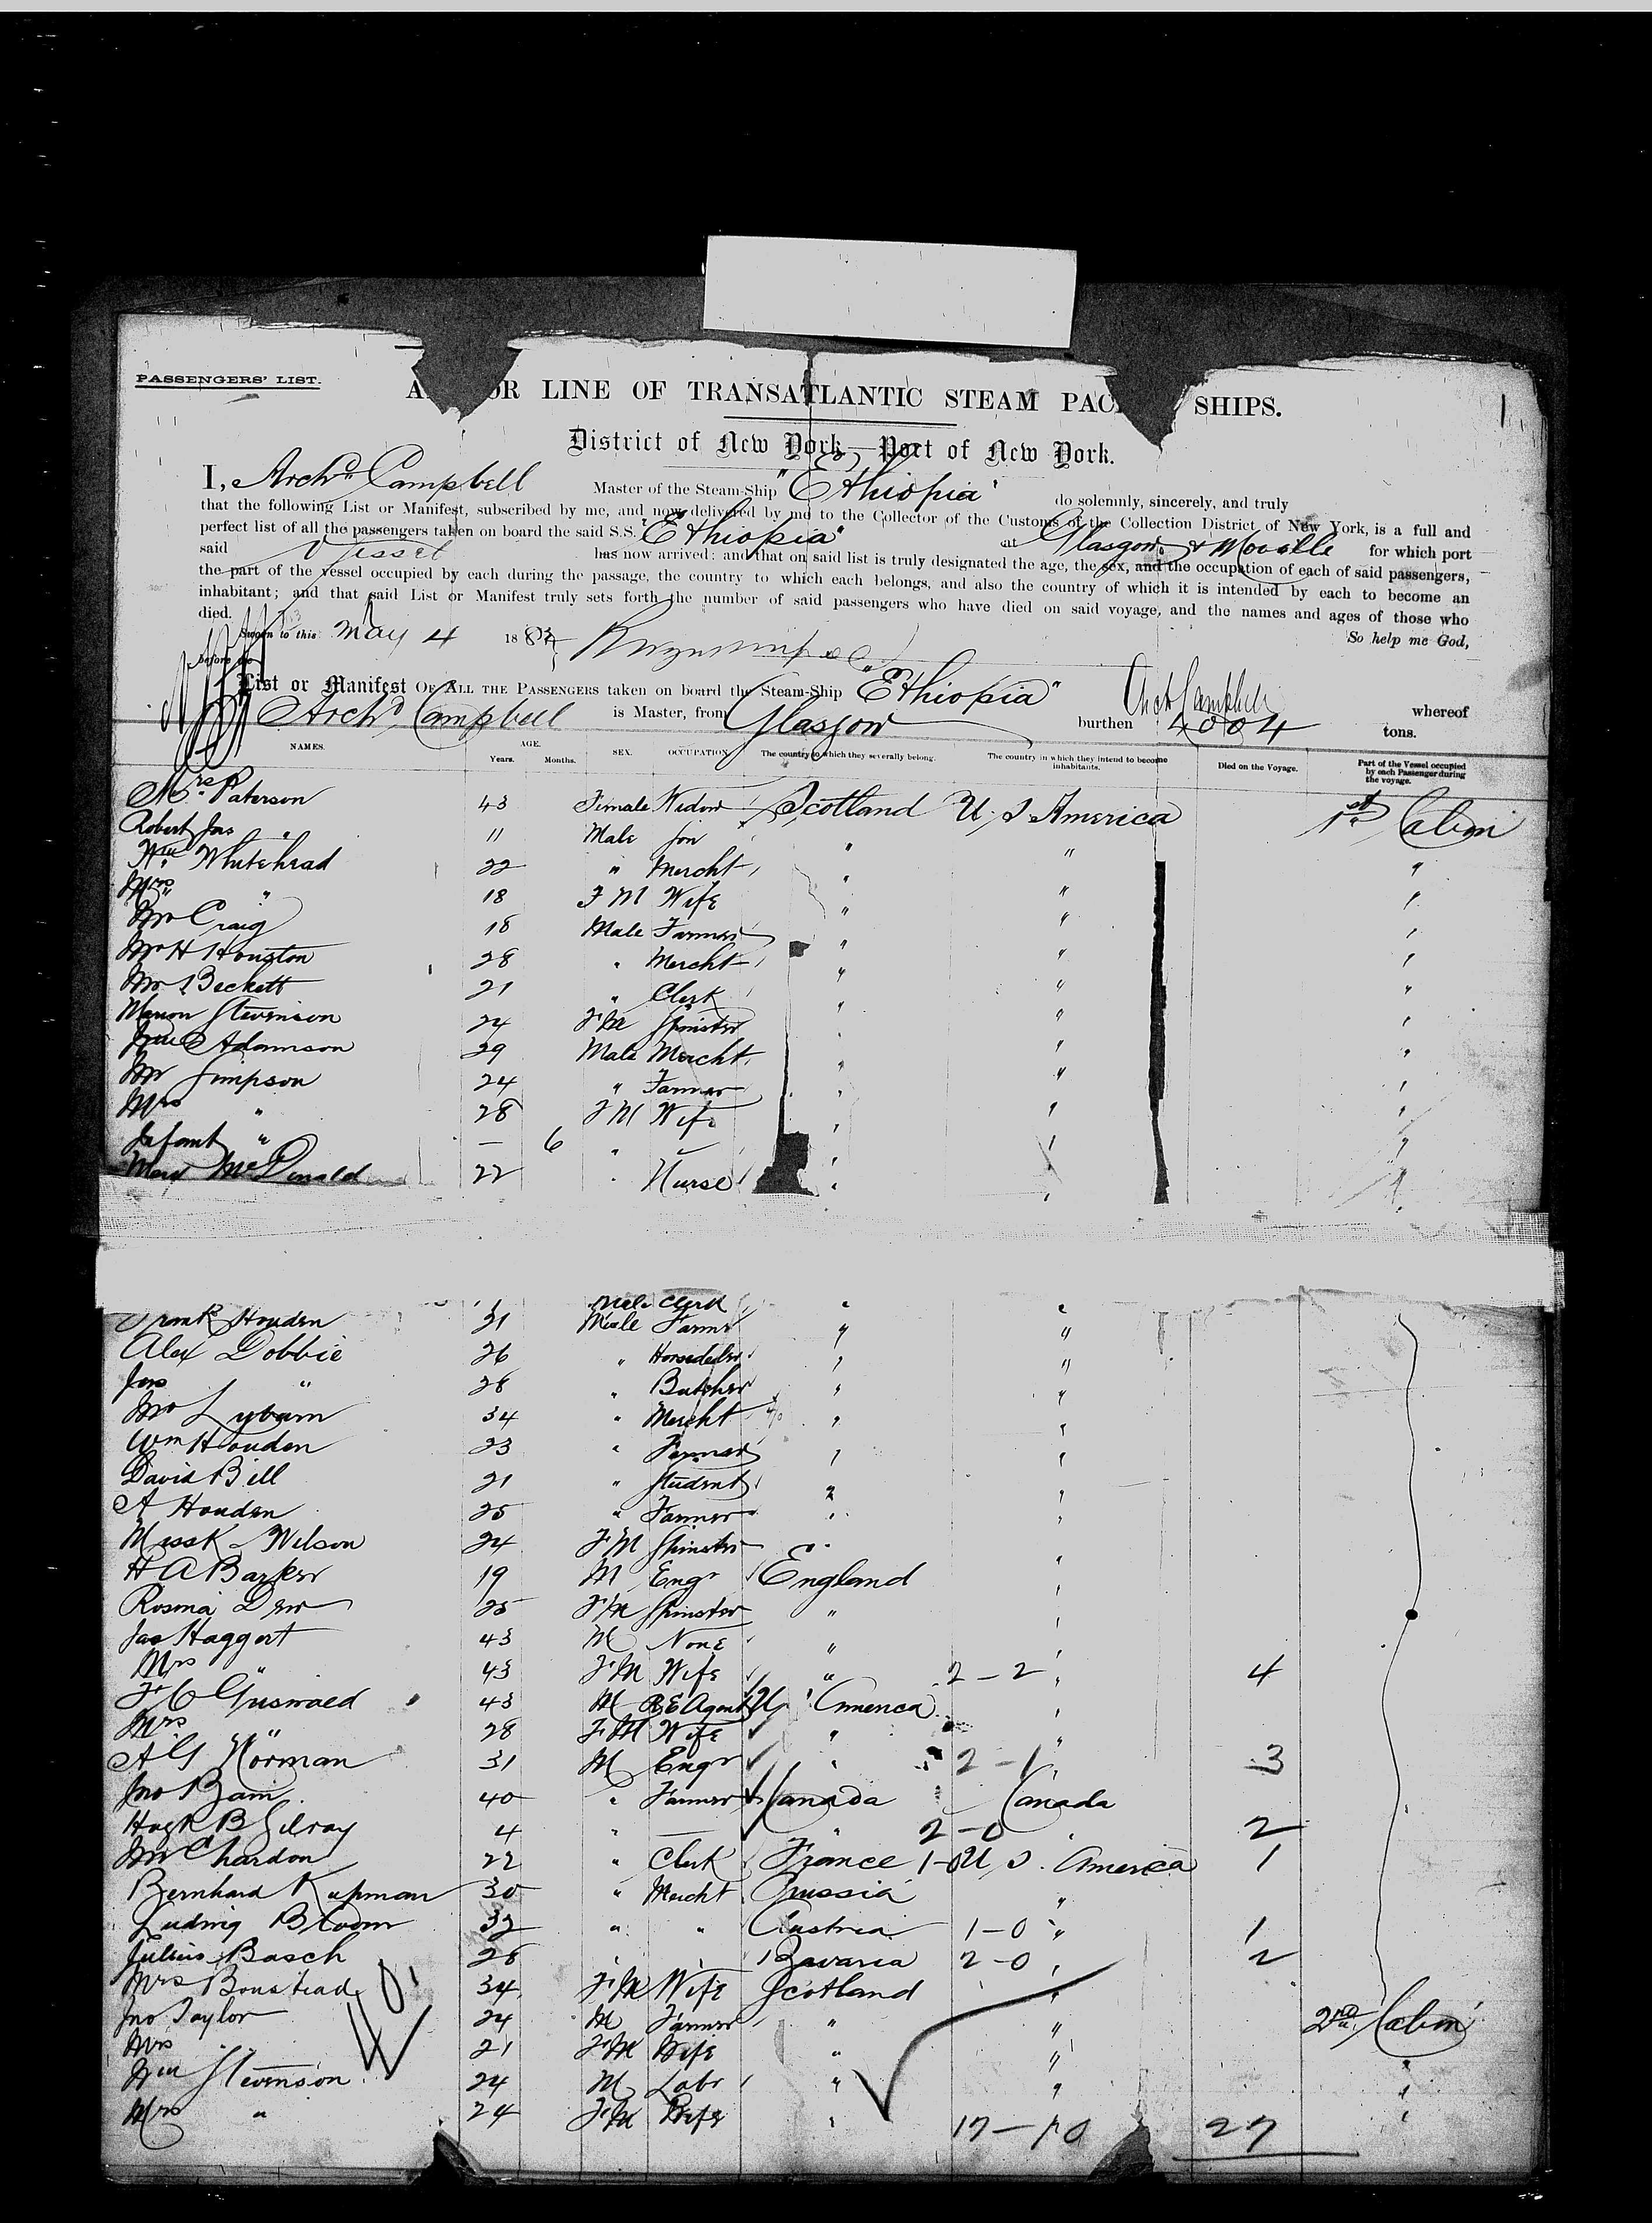 PASSENGERS' LIST.
OR LINE OF TRANSATLANTIC STEAM PAC SHIPS.
District of New York—Port of New York.
I, Archd Campbell Master of the Steam-Ship "Ethiopia" do solemnly, sincerely, and truly
that the following List or Manifest, subscribed by me, and now delivered by me to the Collector of the Customs of the Collection District of New York, is a full and
perfect list of all the passengers taken on board the said S.S. "Ethiopia" at Glasgow & Moville for which port
said Vessel has now arrived: and that on said list is truly designated the age, the sex, and the occupation of each of said passengers,
the part of the vessel occupied by each during the passage, the country to which each belongs, and also the country of which it is intended by each to become an
inhabitant; and that said List or Manifest truly sets forth the number of said passengers who have died on said voyage, and the names and ages of those who
died. So help me God,
Sworn to this May 4 188
before me
Arch Campbell
List or Manifest OF ALL THE PASSENGERS taken on board the Steam-Ship "Ethiopia" whereof
Archd Campbell is Master, from Glasgow burthen 4004 tons.
NAMES. AGE. Years. Months. SEX. OCCUPATION. The country to which they severally belong. The country in which they intend to become inhabitants. Died on the Voyage. Part of the Vessel occupied by each Passenger during the voyage.
Mrs Paterson 43 Female Widow Scotland U.S. America 1st Cabin
Robert Jas " 11 Male Son " "
Wm Whitehead 22 " Mercht " " "
Mrs " 18 FM Wife " " "
Mr Craig 18 Male Farmer " " "
Mr H Houston 28 " Mercht " " "
Mr Beckett 21 " Clerk " " "
Marion Stevenson 24 FM Spinster " " "
Adamson 29 Male Mercht " " "
Mr Simpson 24 " Farmer " " "
Mrs " 28 FM Wife " " "
Infant " — 6 " — " " "
Mary McDonald 22 " Nurse " " "
Male Clerk " "
Frank Houden 21 Male Farmr " "
Alex Dobbie 26 " Horsedealer " "
Jas " 28 " Butcher " "
Mr 34 " Mercht " "
Wm Houden 23 " Farmer " "
David Bell 21 " Student " "
A Houden 25 " Farmer " "
Miss K Wilson 24 FM Spinster "
H A Barker 19 M Engr England "
Rosina Drew 25 FM Spinster " "
Jas Haggart 43 M None " "
Mrs " 43 FM Wife " 2-2 " 4
43 M R E Agent U America "
Mrs " 28 FM Wife " "
A G Norman 31 M Engr " 2-1 " 3
Jno Bain 40 " Farmer Canada Canada
Hugh B Gilray 4 " — " 2-0 " 2
Mr Chardon 22 " Clerk France 1-0 U.S. America 1
Bernhard Kupman 30 " Mercht Prussia "
Ludwig Bloom 32 " " Austria 1-0 " 1
Julius Basch 28 " " Bavaria 2-0 " 2
Mrs Boustead 34 FM Wife Scotland "
Jno Taylor 24 M Farmer " " 2nd Cabin
Mrs " 21 FM Wife " " "
Wm Stevenson 24 M Labr " " "
Mrs " 24 FM Wife " "
40
17-10 27